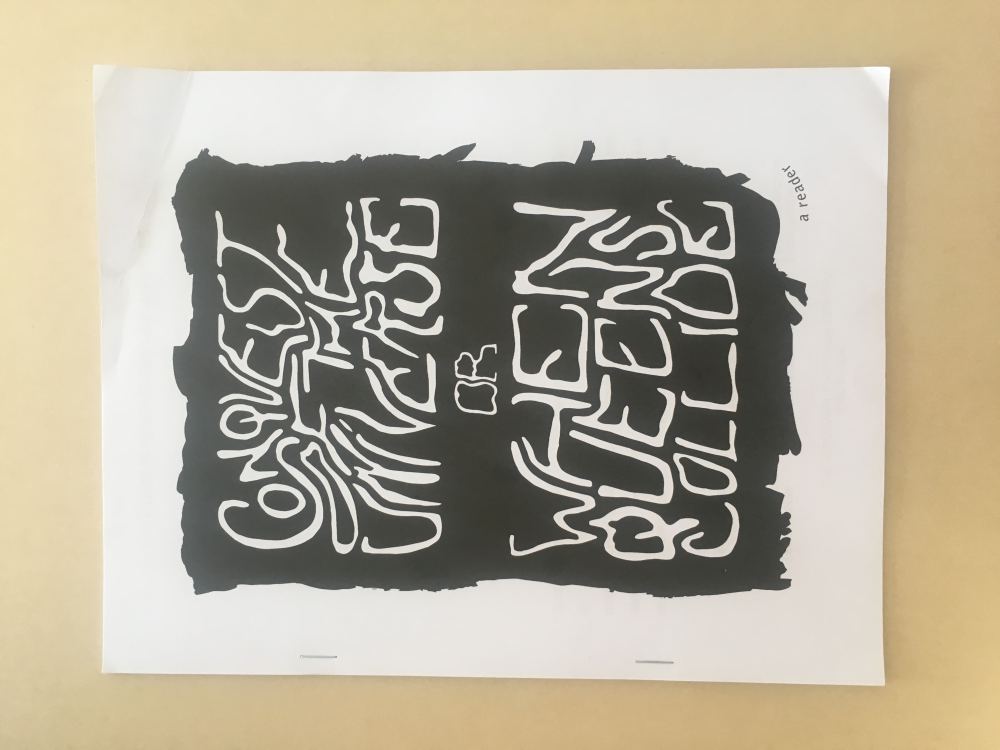 CONQUEST
OF THE
UNIVERSE
OR
WHEN
QUEENS
COLLIDE
a reader